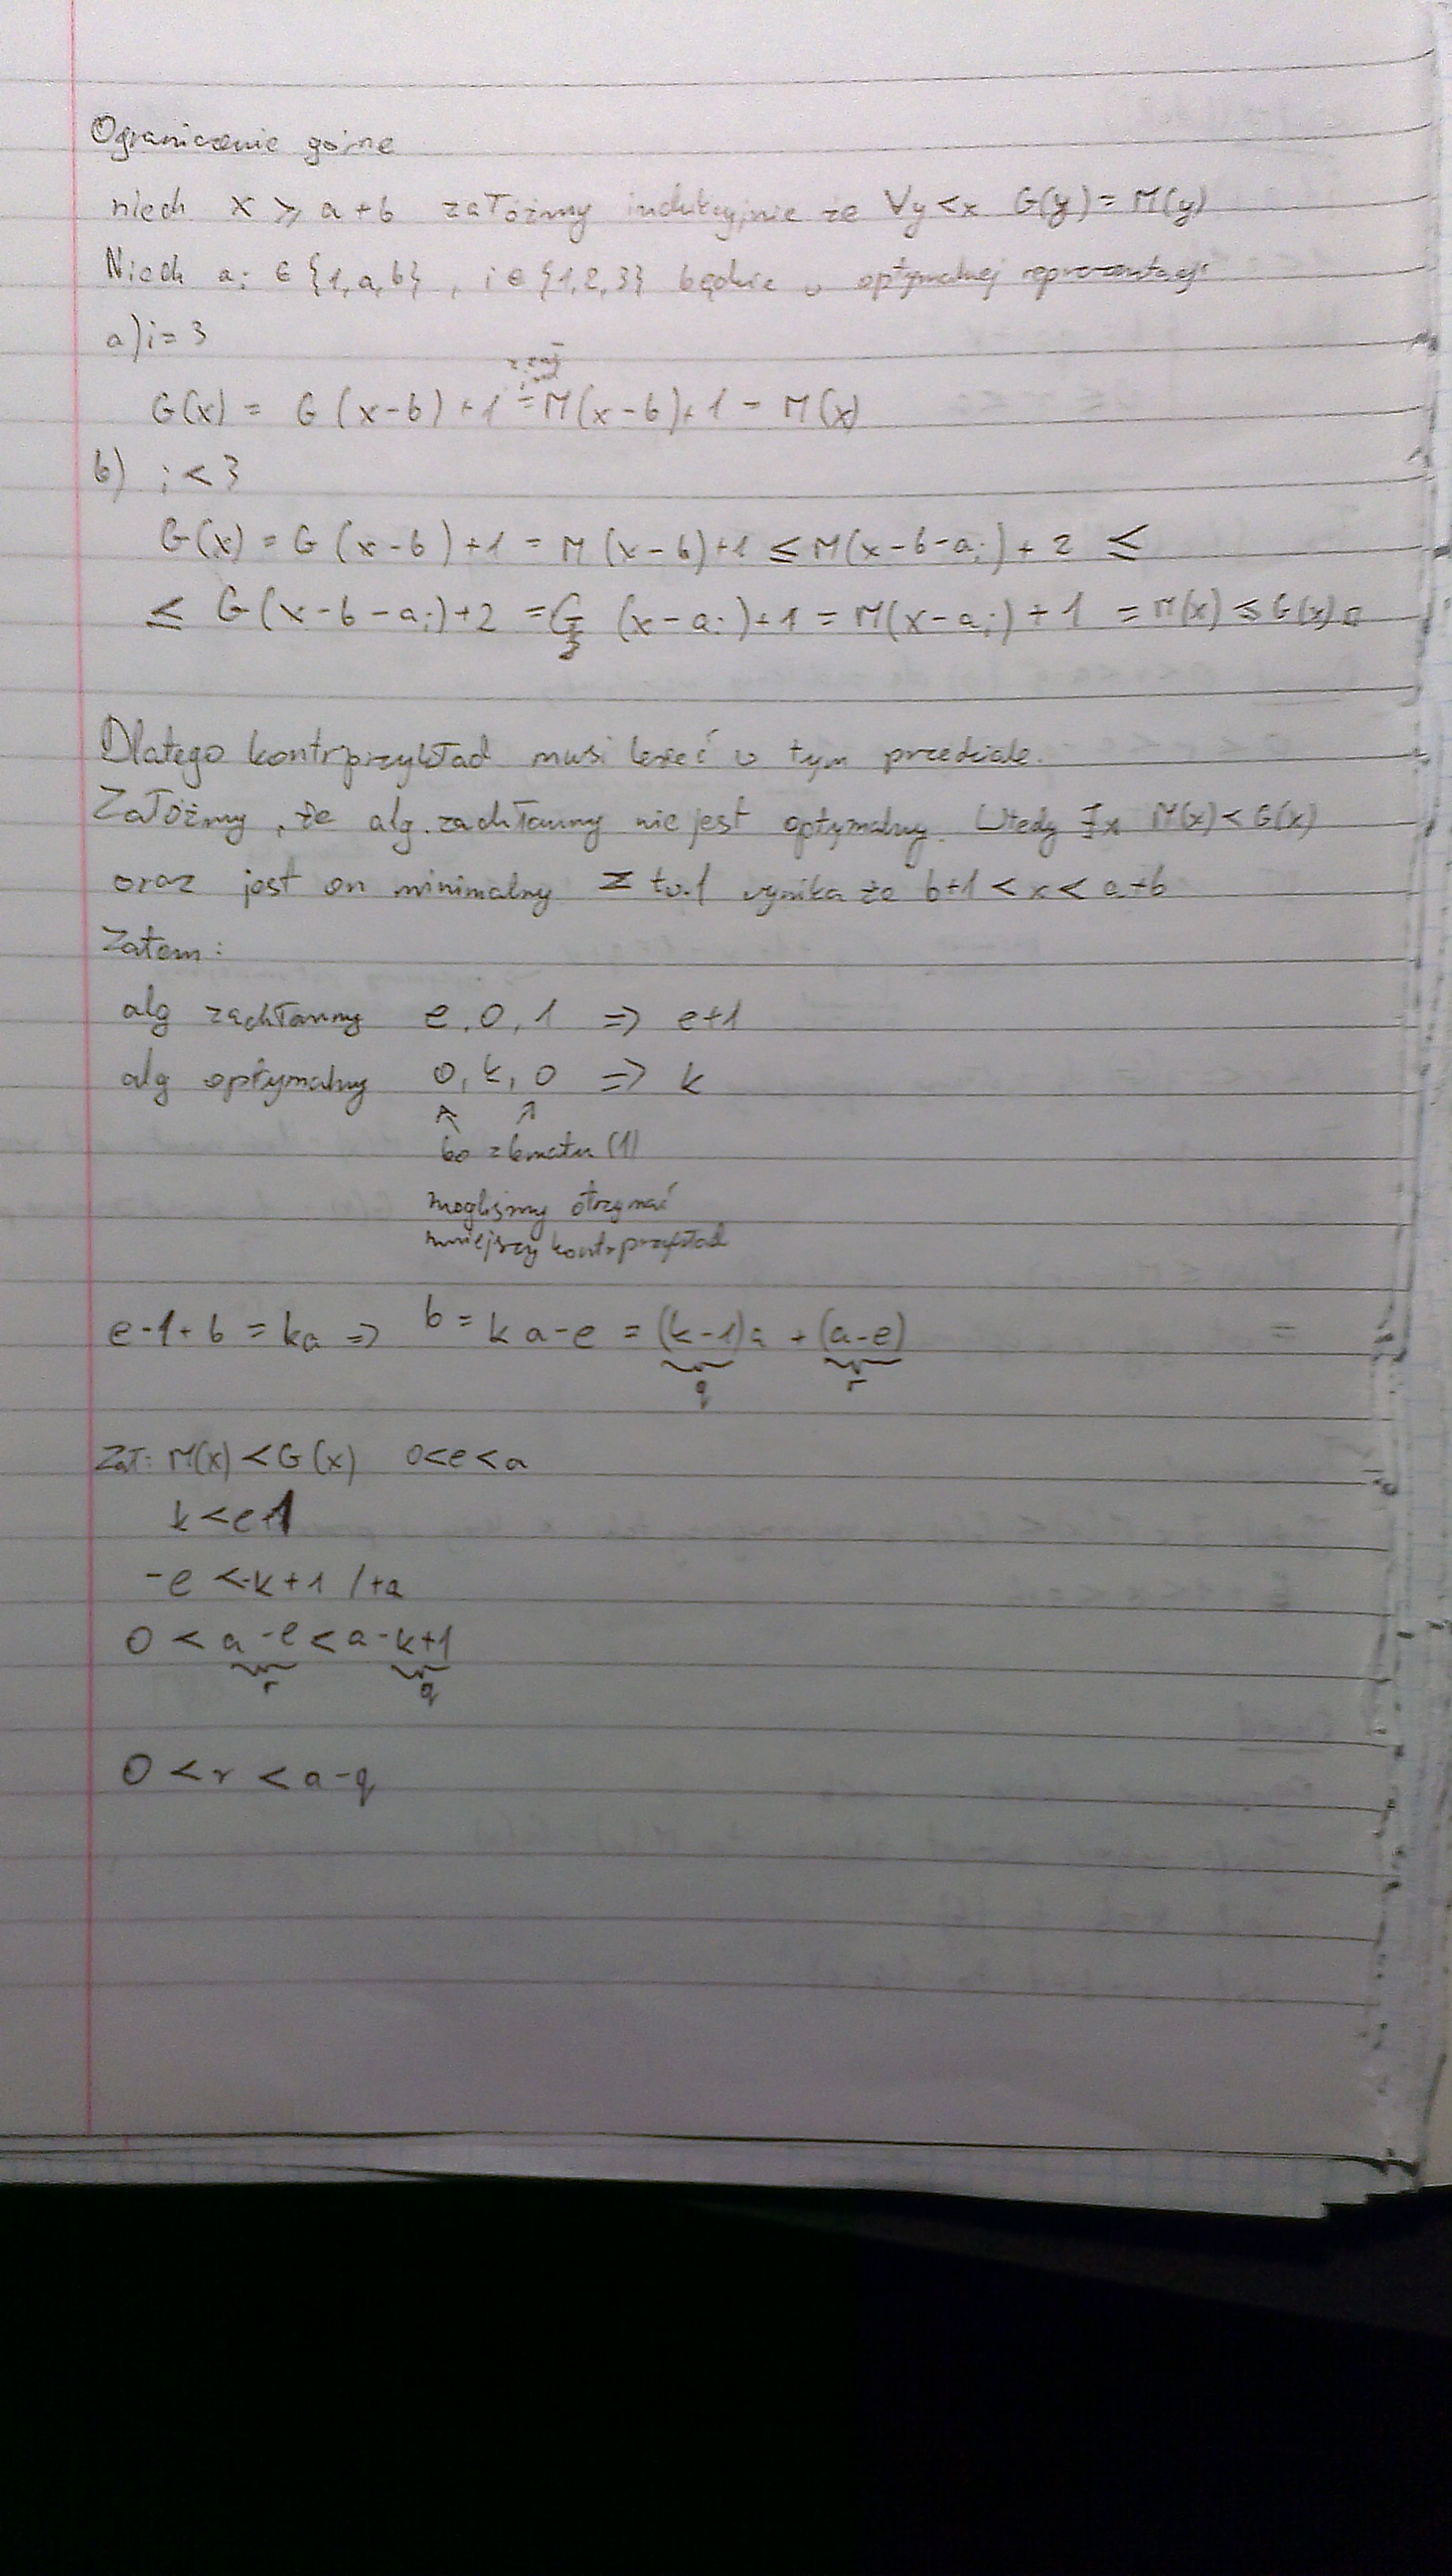 Ograniczenie górne
niech x ≥ a+b załóżmy indukcyjnie że ∀y<x G(y) = M(y)
Niech a_i ∈ {1,a,b}, i ∈ {1,2,3} będzie w optymalnej reprezentacji
a) i = 3
G(x) = G(x-b) +1 = M(x-b)+1 = M(x)
b) i < 3
G(x) = G(x-b)+1 = M(x-b)+1 ≤ M(x-b-a_i) + 2 ≤
≤ G(x-b-a_i)+2 = G(x-a_i)+1 = M(x-a_i) + 1 = M(x) ≤ G(x) □
Dlatego kontrprzykład musi leżeć w tym przedziale.
Załóżmy, że alg. zachłanny nie jest optymalny. Wtedy ∃x M(x) < G(x)
oraz jest on minimalny Z tw.1 wynika że b+1 < x < a+b
Zatem:
alg zachłanny e, 0, 1 => e+1
alg optymalny 0, k, 0 => k
↖ ↗
bo z lematu (1)
mogliśmy otrzymać
mniejszy kontrprzykład
e·1+b = ka => b = ka-e = (k-1)a + (a-e)
q r
Zał: M(x) < G(x) 0<e<a
k < e+1
-e < -k+1 /+a
0 < a-e < a-k+1
r q
0 < r < a-q